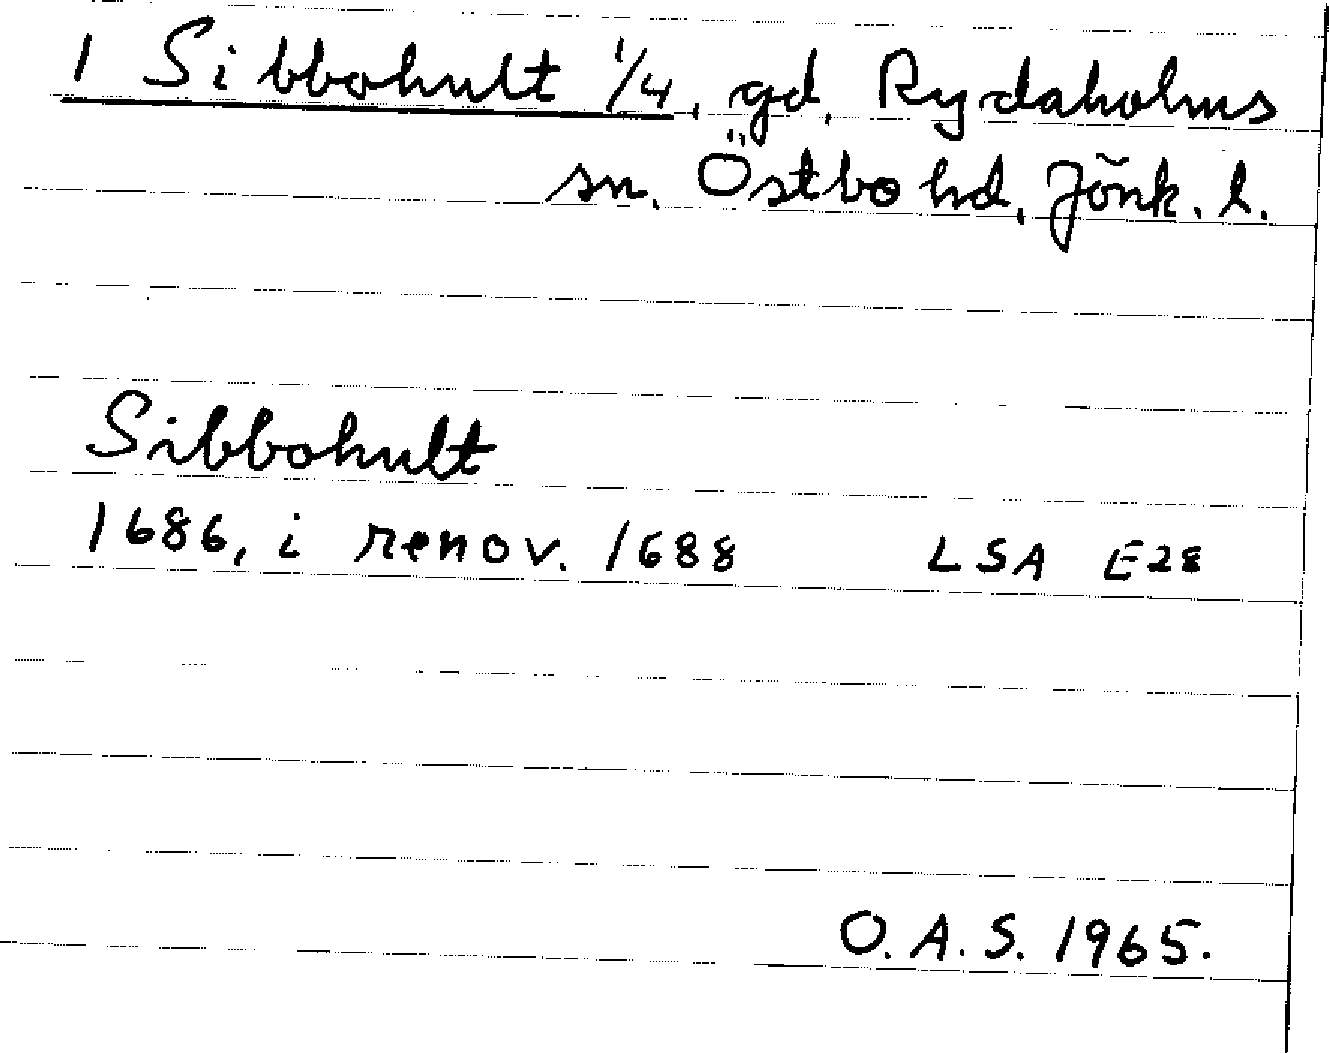 1 Sibbohult 1/4, gd, Rydaholms
sn. Östbo hd, Jönk. l.
Sibbohult
1686, i renov. 1688 LSA E28
O.A.S. 1965.